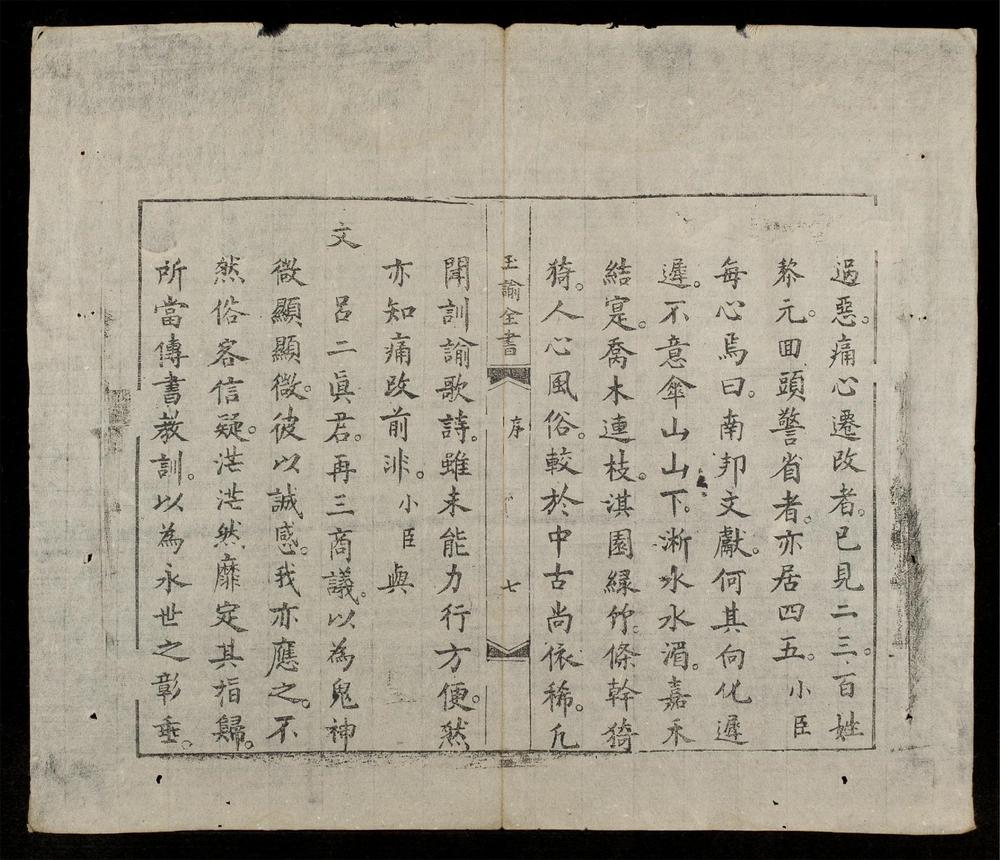 過惡。痛心遷改者。已見二三。百姓
黎元。囬頭警省者。亦居四五。小臣
每心焉曰。南邦文獻。何其向化遲
遲。不意傘山山下。淅水水湄。嘉禾
結寔。喬木連枝。淇園綠竹。條幹猗
猗。人心風俗。較於中古尚依稀。凢
玉諭全書
序
七
聞訓諭歌詩。雖未能力行方便。然
亦知痛改前非。小臣與
文
呂二眞君。再三商議。以為鬼神
微顯顯微。彼以誠感。我亦應之。不
然俗客信疑。茫茫然靡定其指歸。
所當傳書教訓。以為永世之彰垂。